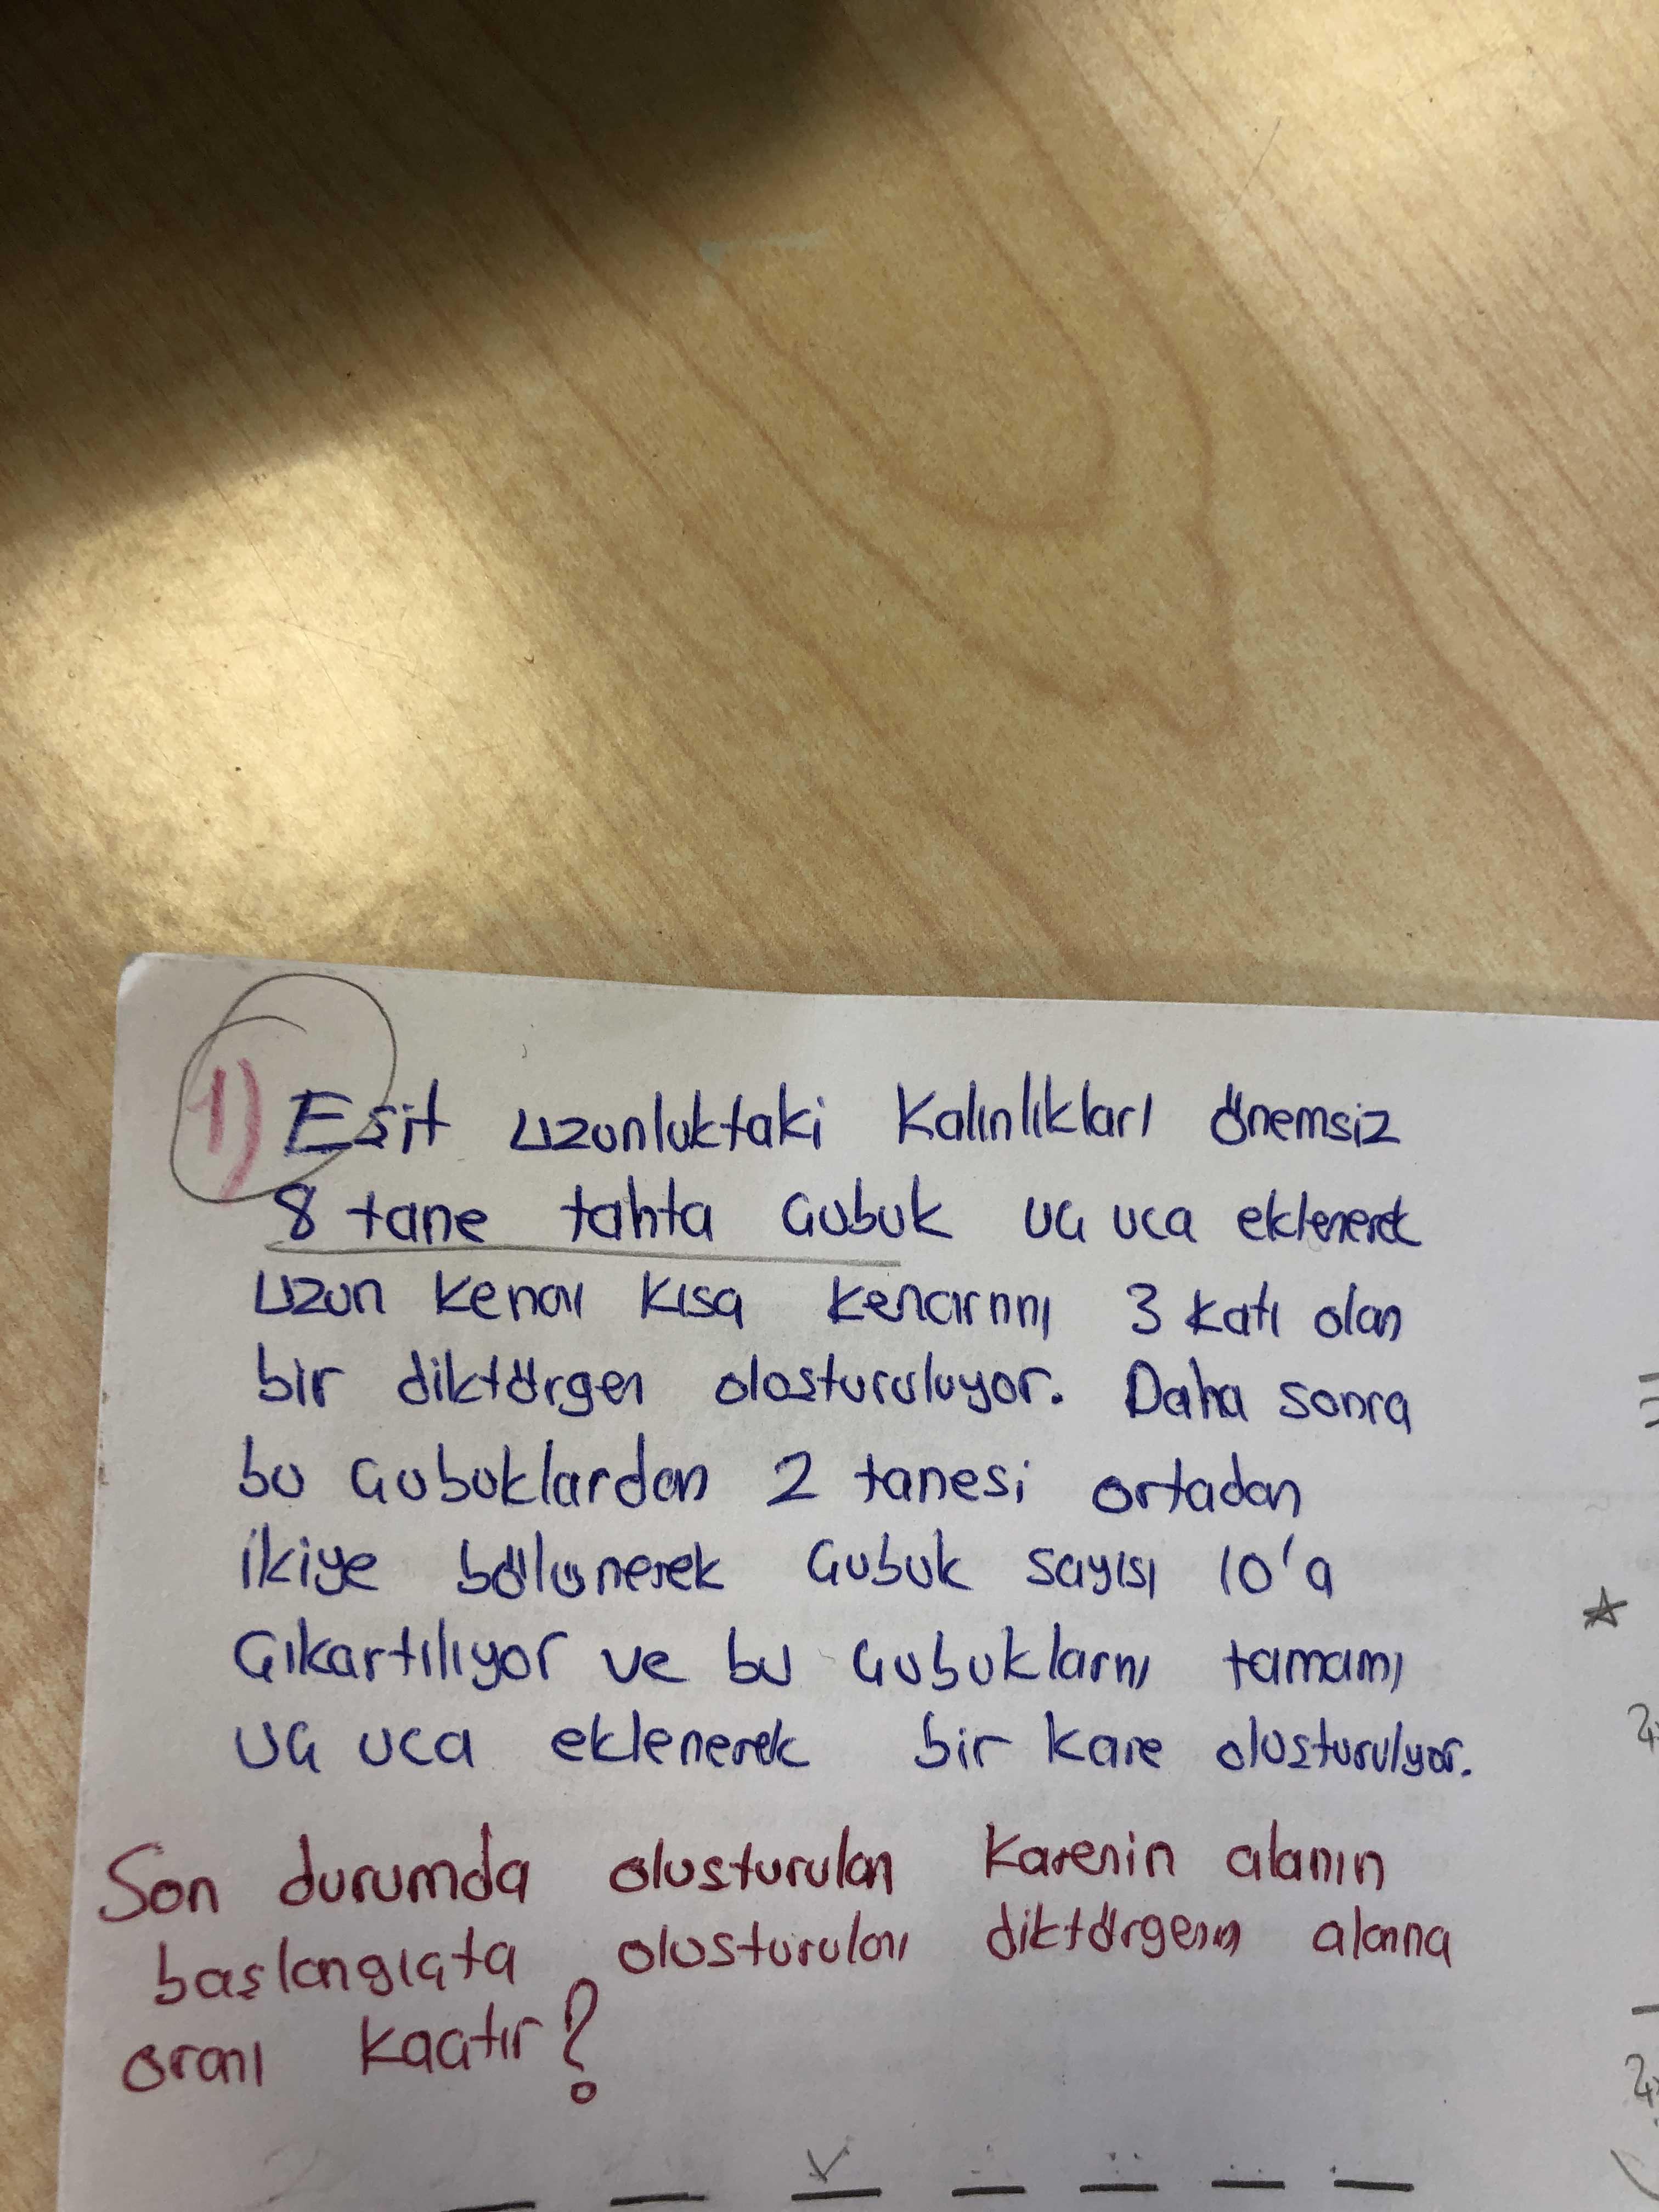 1) Eşit uzunluktaki kalınlıkları önemsiz
8 tane tahta çubuk uç uca eklenerek
uzun kenarı kısa kenarının 3 katı olan
bir diktörgen olosturuluyor. Daha sonra
bu çubuklardan 2 tanesi ortadan
ikiye bölünerek çubuk sayısı 10'a
çıkartılıyor ve bu çubukların tamamı
uç uca eklenerek bir kare olusturulyor.
Son durumda olusturulan karenin alanın
başlangıçta olusturulan diktörgenin alanına
oranı kaçtır?